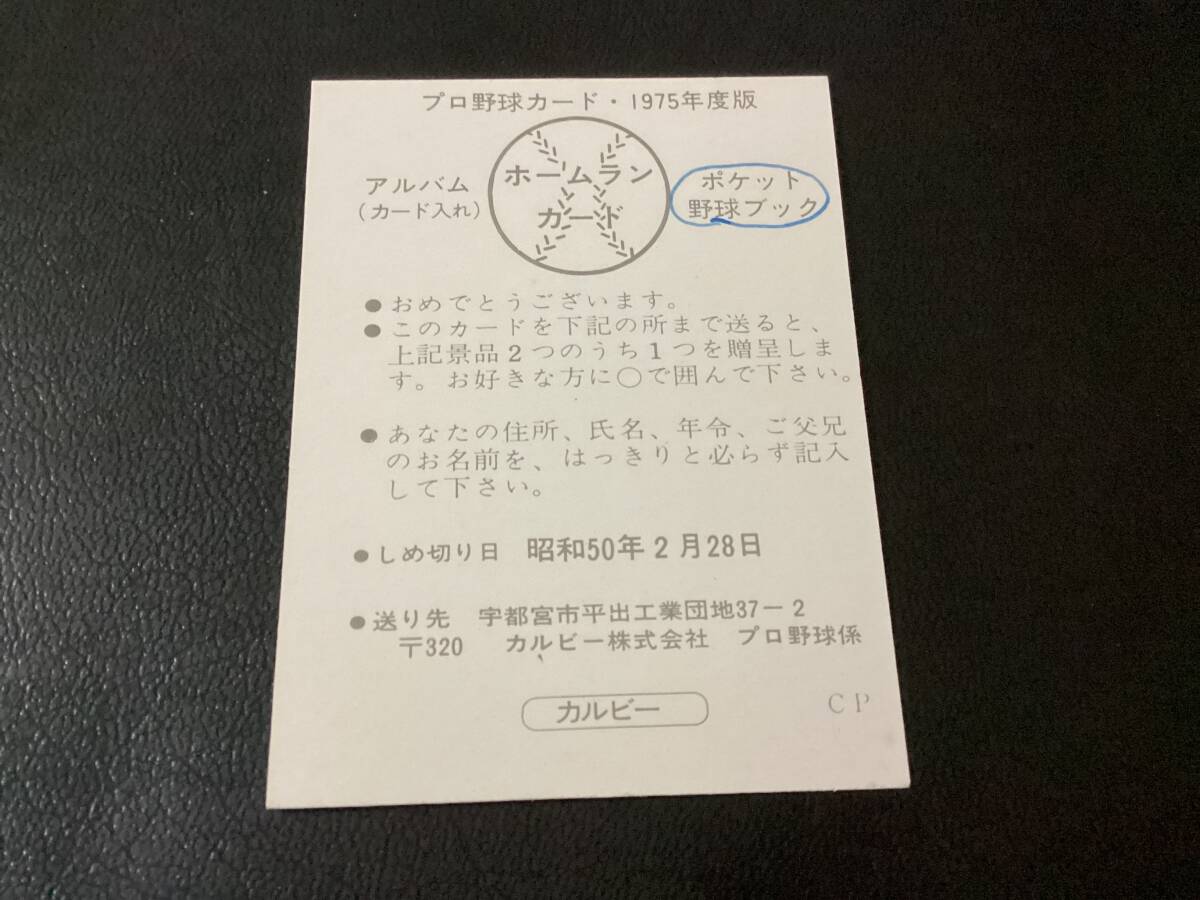 プロ野球カード・1975年度版
アルバム
(カード入れ)
ホームラン
カード
ポケット
野球ブック
●おめでとうございます。
●このカードを下記の所まで送ると、
上記景品2つのうち1つを贈呈しま
す。お好きな方に○で囲んで下さい。
●あなたの住所、氏名、年令、ご父兄
のお名前を、はっきりと必らず記入
して下さい。
●しめ切り日 昭和50年2月28日
●送り先 宇都宮市平出工業団地37-2
〒320 カルビー株式会社 プロ野球係
カルビー
CP